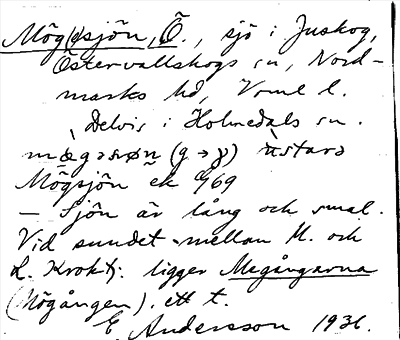 Mög(e)sjön, Ö., sjö i Juskog,
Östervallskogs sn, Nord-
marks hd, Vrml l.
Delvis i Holmedals sn.
Mögsjön ek 969
– Sjön är lång och smal.
Vid sundet mellan M. och
L. Kroktj: ligger Megångarna
(Mögången). ett t.
E Andersson 1936.